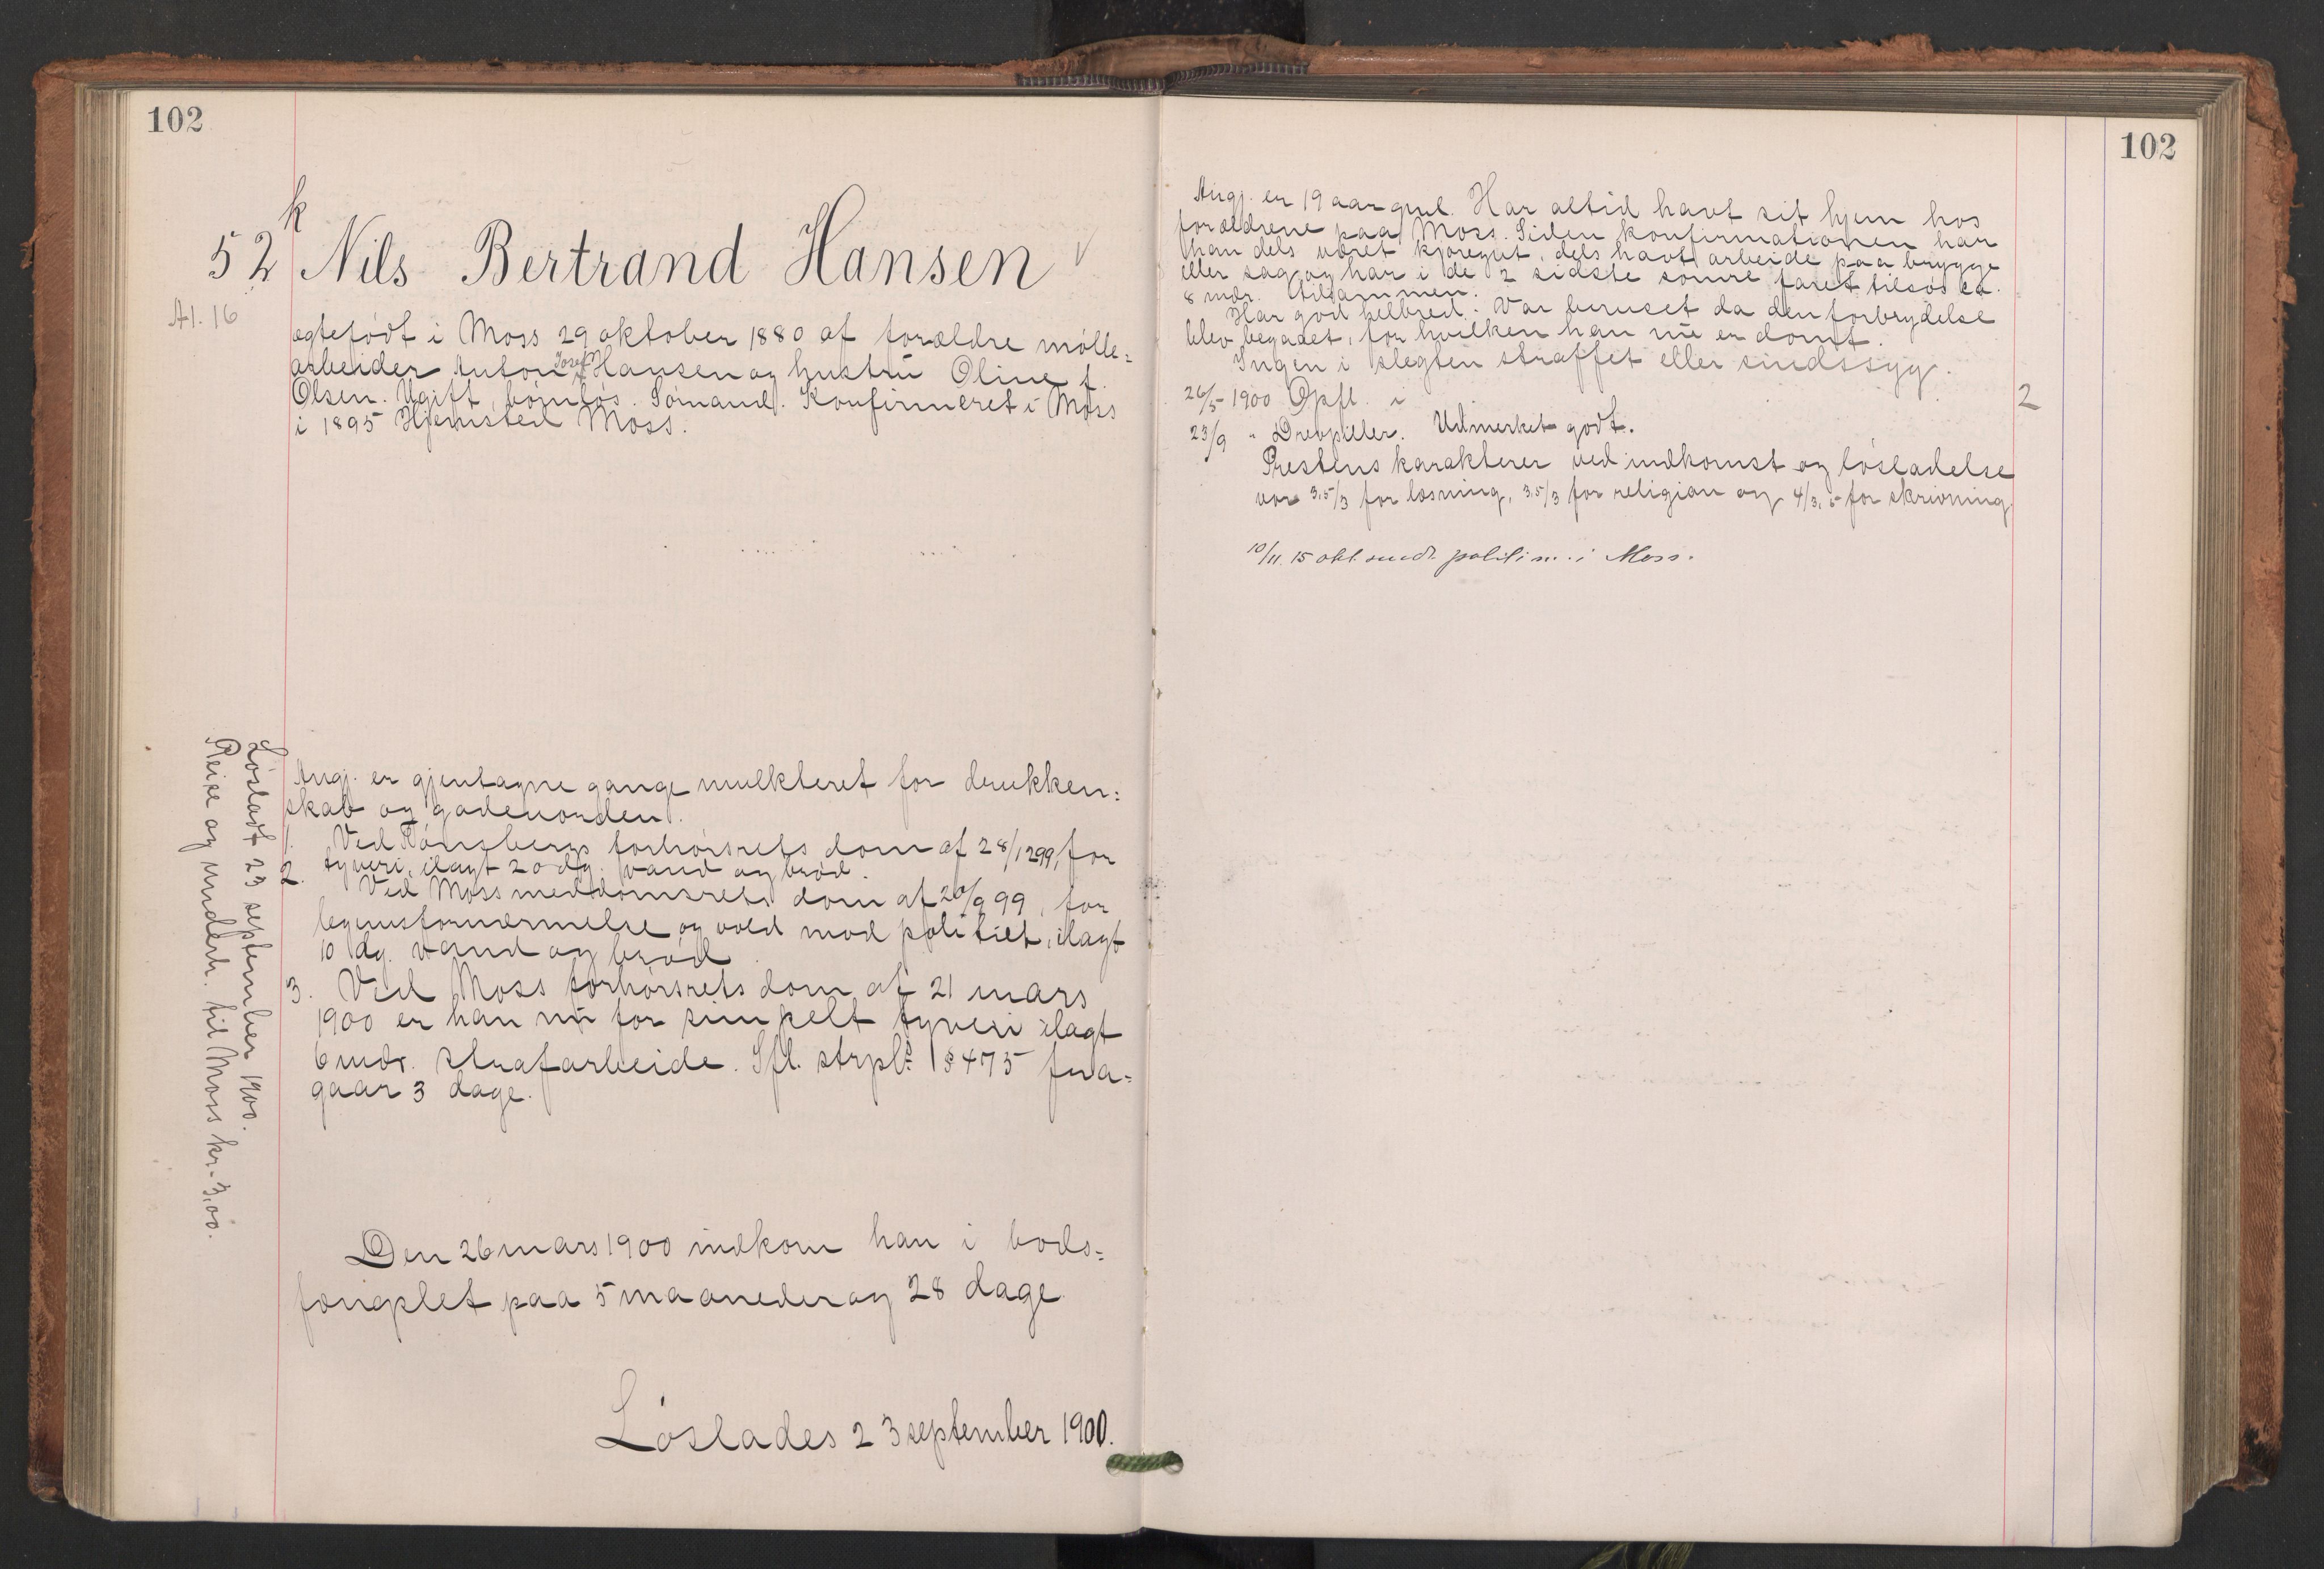 102
k
52 Nils Bertrand Hansen
A1. 16
ægtefødt i Moss 29 oktober 1880 af forældre mølle=
arbeider Anton Josef Hansen og hustru Oline f.
Olsen. Ugift, børnløs. Sømand. Konfirmeret i Moss
i 1895 Hjemsted Moss.
Angj. er gjentagne gange mulkteret for drukken=
skab og gadeuorden.
1. Ved Tønsbergs forhørsrets dom af 28/1299, for
tyveri, ilagt 20 dg. vand og brød.
2. Ved Moss meddomsrets dom af 20/9 99, for
legemsfornærmelse og vold mod politiet, ilagt
10 dg. vand og brød.
3. Ved Moss forhørsrets dom af 21 mars
1900 er han nu for simpelt tyveri ilagt
6 mdr. strafarbeide. Ifl. strpl. § 475 fra=
gaar 3 dage.
Løsladt 23 september 1900.
Reise og underh. til Moss kr. 3,00.
Den 26 mars 1900 indkom han i bods=
fængslet paa 5 maaneder og 28 dage
Løslades 23 september 1900.
102
Angj. er 19 aar gml. Har altid havt sit hjem hos
forældrene paa Moss. Siden konfirmationen har
han dels været kjøregut, dels havt arbeide paa brygge
eller sag og har i de 2 sidste somre faret tilsøs ca.
8 mdr. tilsammen.
Har god helbred. Var beruset da den forbrydelse
blev begaaet, for hvilken han nu er dømt.
Ingen i slegten straffet eller sindssyg.
26/5 1900 Opfl. i 2
23/9 " Drevpiller. Udmerket godt.
Prestens karakterer ved indkomst og løsladelse
var 3,5/3 for læsning, 3,5/3 for religion og 4/3,5 for skrivning.
10/11. 15 sendt politim. i Moss.